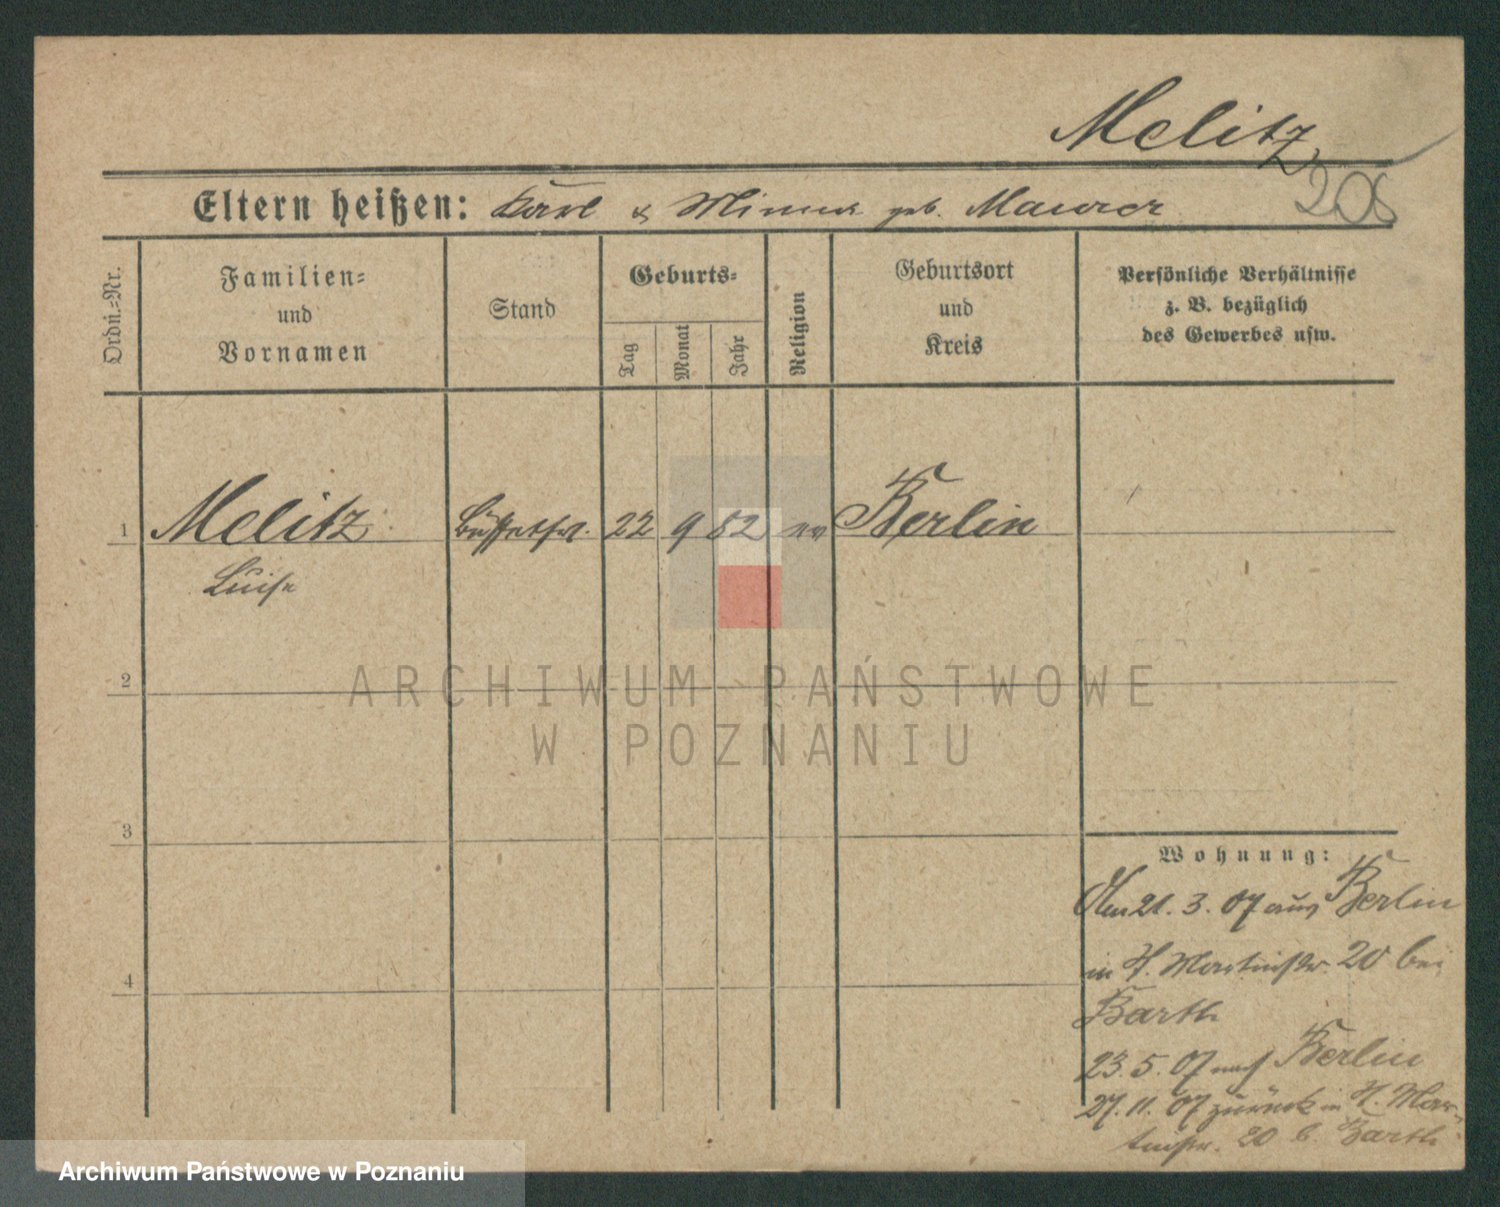 Melitz
208
Eltern heißen: Karl & Minna geb. Maurer
Ordn.=Nr.
Familien=
und
Vornamen
Stand
Geburts=
Tag
Monat
Jahr
Religion
Geburtsort
und
Kreis
Persönliche Verhältnisse
z. B. bezüglich
des Gewerbes usw.
1 Melitz Büffetfrl. 22 9 82 ev Berlin
Luise
2
3
4
Wohnung:
Am 21. 3. 07 aus Berlin
in H. Martinstr. 20 bei
Barth
23. 5. 07 nach Berlin
27. 11. 07 zurück in H. Mar-
tinstr. 20 b. Barth
ARCHIWUM PAŃSTWOWE
W POZNANIU
Archiwum Państwowe w Poznaniu